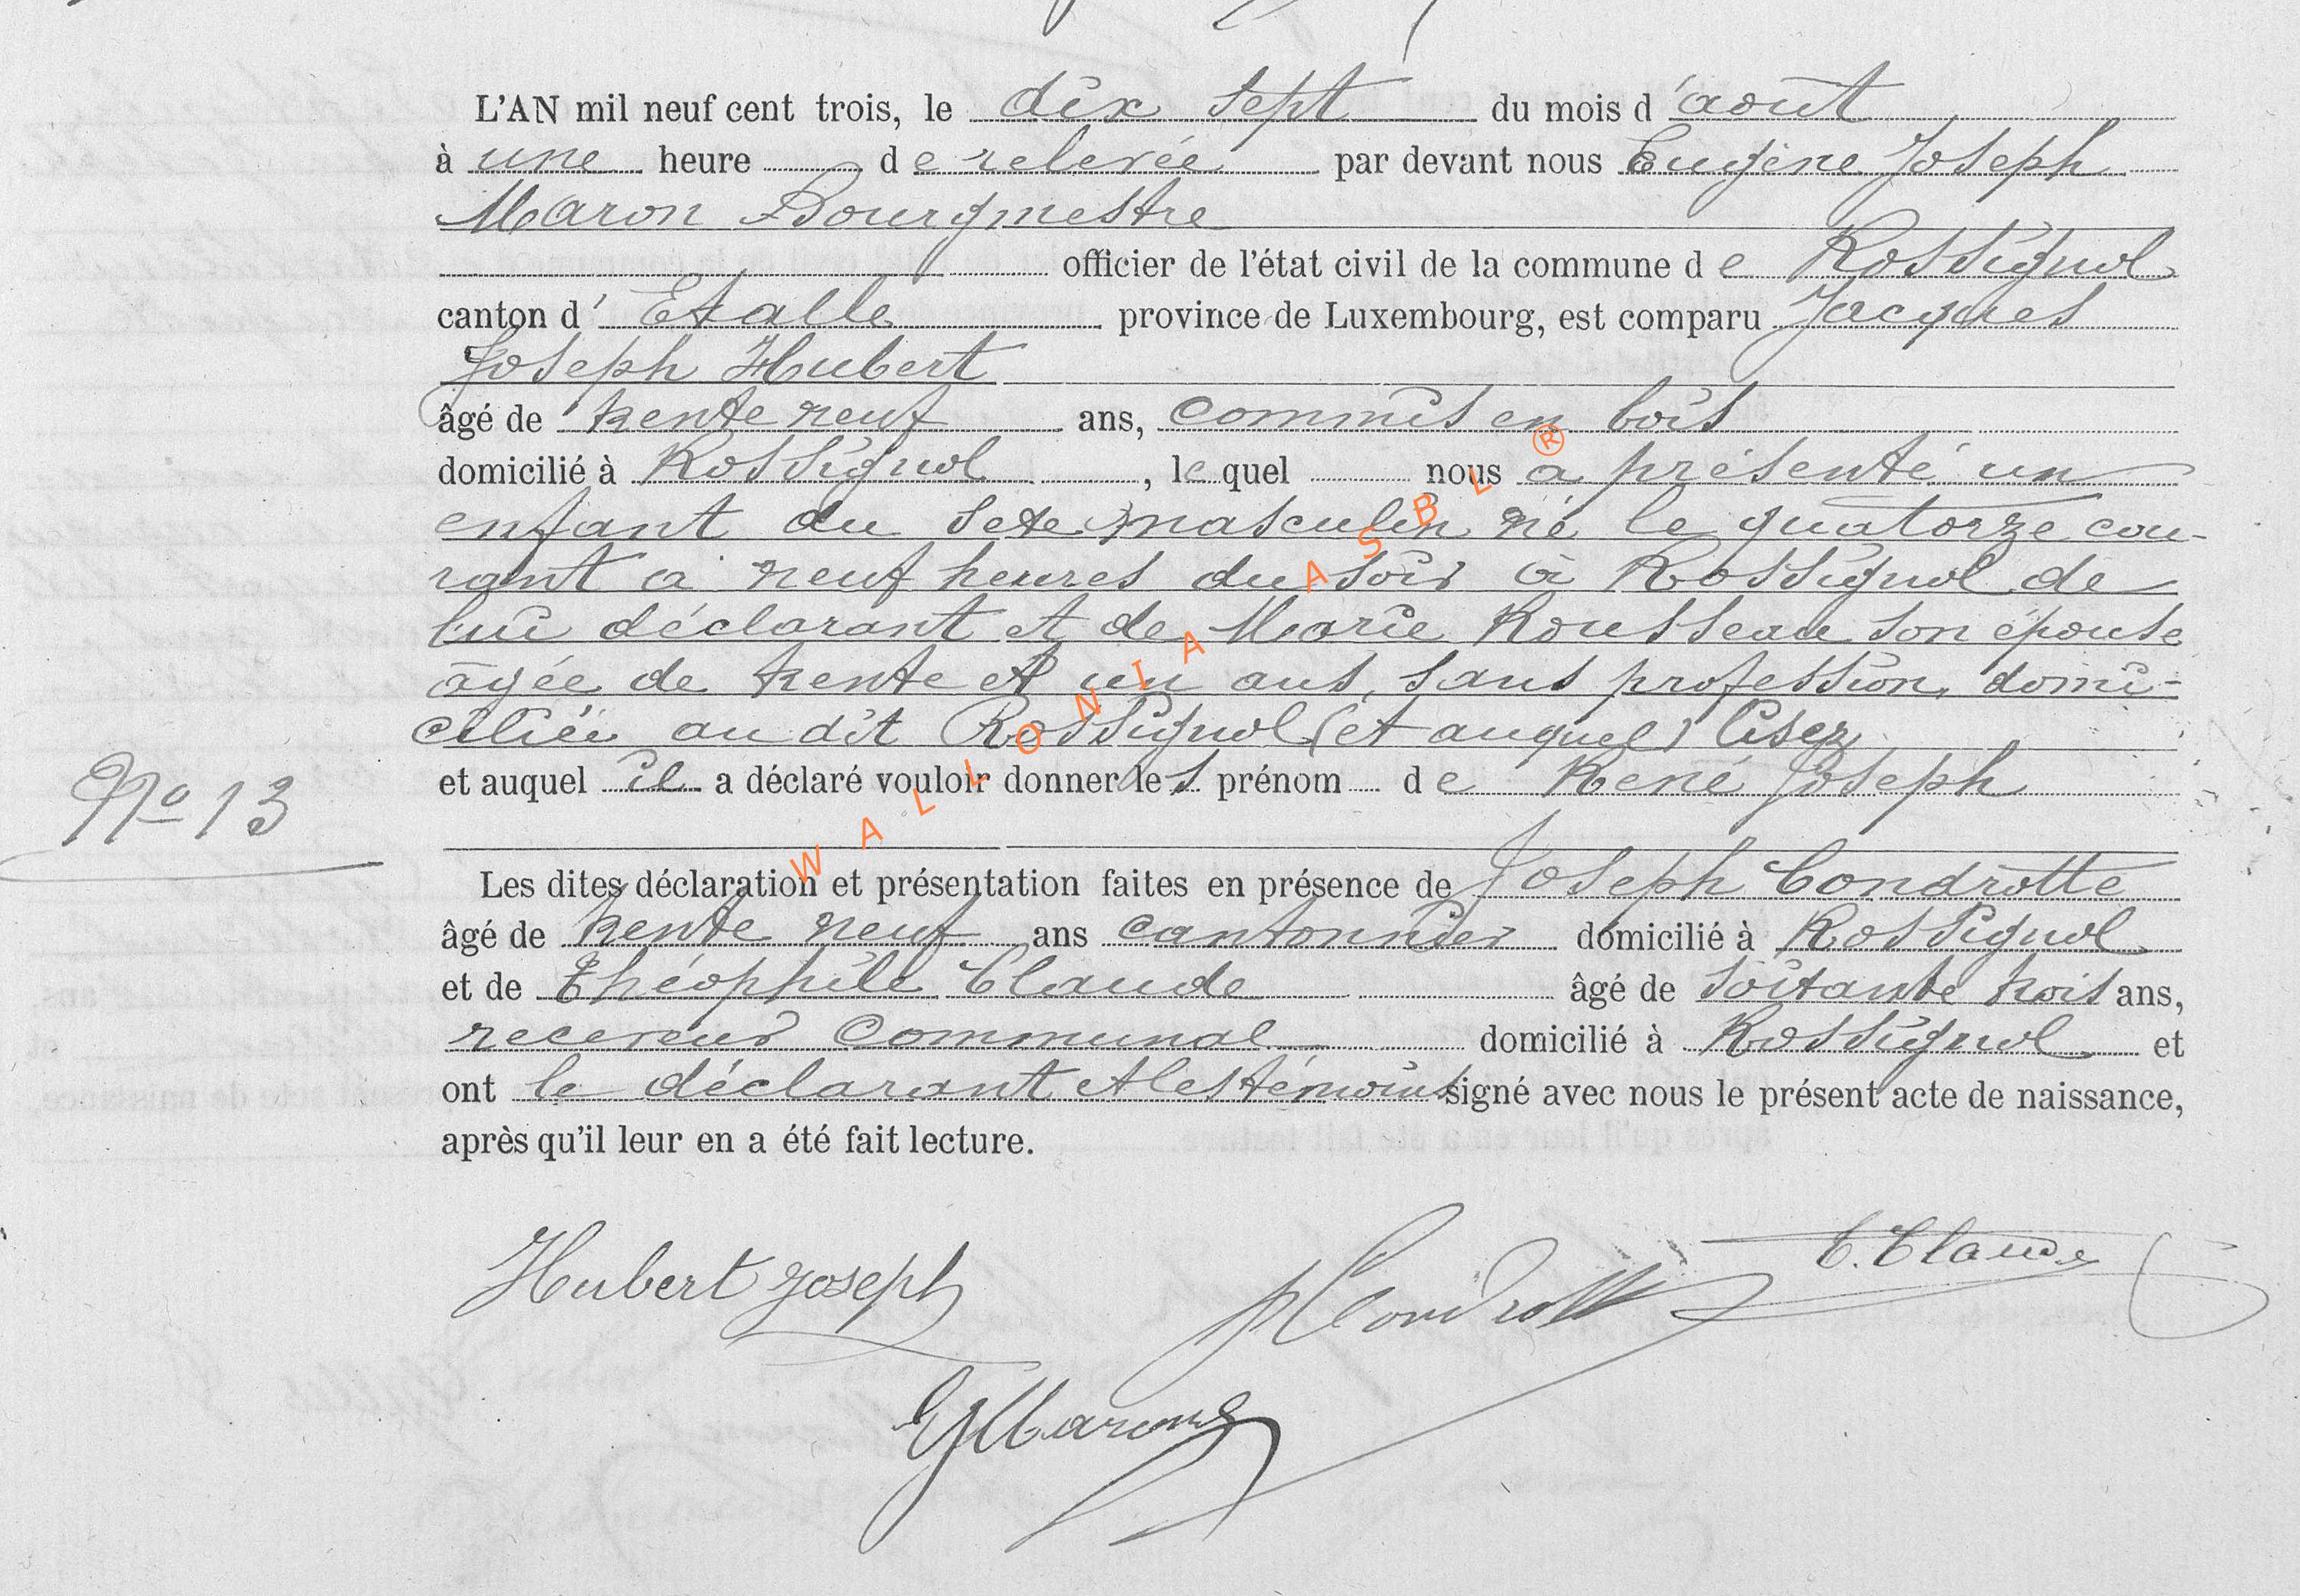 L'AN mil neuf cent trois, le dix sept du mois d'août
à une heure de relevée par devant nous Eugène Joseph
Maron Bourgmestre
officier de l'état civil de la commune de Rossignol
canton d'Etalle province de Luxembourg, est comparu Jacques
Joseph Hubert
âgé de trente neuf ans, commis en bois
domicilié à Rossignol, lequel nous a présenté un
enfant du sexe masculin né le quatorze cou-
rant à neuf heures du soir à Rossignol de
lui déclarant et de Marie Rousseau son épouse
âgée de trente et un ans, sans profession, domi-
ciliée au dit Rossignol (et auquel) lisez
et auquel il a déclaré vouloir donner les prénom de René Joseph
Nº 13
Les dites déclaration et présentation faites en présence de Joseph Condrotte
âgé de trente neuf ans cantonnier domicilié à Rossignol
et de Théophile Claude âgé de soixante trois ans,
receveur communal domicilié à Rossignol et
ont le déclarant et les témoins signé avec nous le présent acte de naissance,
après qu'il leur en a été fait lecture.
Hubert Joseph
J Condrotte
T. Claude
EJMaron
WALLONIA ASBL ®